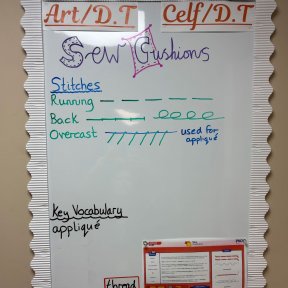 Art/D.T Celf/D.T
Sew Cushions
Stitches
Running
Back
Overcast used for
appliqué
Key Vocabulary
appliqué
thread